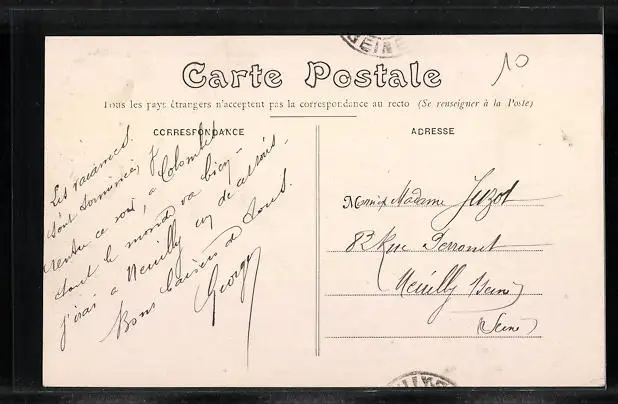 SEINE
10
Carte Postale
Tous les pays étrangers n'acceptent pas la correspondance au recto (Se renseigner à la Poste)
CORRESPONDANCE
Les vacances
sont terminées, je
rentre ce soir, a Colombes
tout le monde va bien
j'irai a Neuilly un de ces
Bons baisers à tous.
Georges
ADRESSE
Madame Juzot
82 Rue Perronet
Neuilly Seine
(Seine)